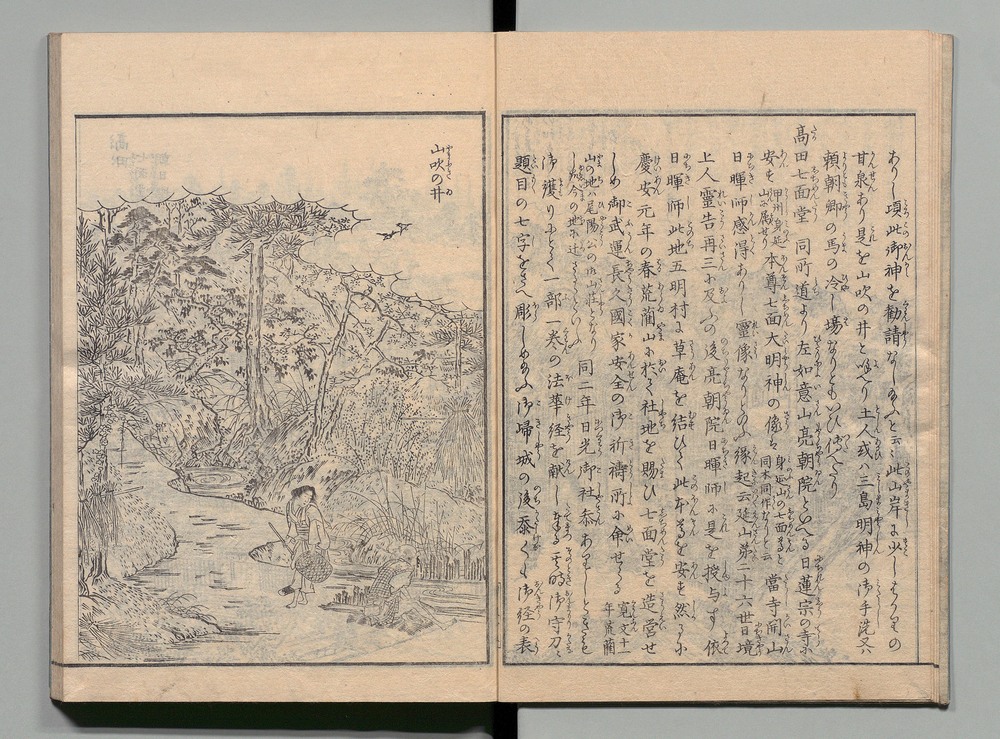 ありし頃此御神を勧請なし給ふと云云此山岸に少しはかりの
甘泉あり是を山吹の井と唱へり土人或ハ三島明神の御手洗又ハ
頼朝卿の馬の冷し場なりともいひ伝へたり
高田七面堂 同所道より左如意山亮朝院といへる日蓮宗の寺に
安す 甲州身延山に属せり 本尊七面大明神の像は 身延山の七面尊と同木同作なりと云 当寺開山
日暉師感得ありし霊像なりとのふ縁起云延山第二十六世日境
上人霊告再三に及ふの後亮朝院日暉師に是を授与す依
日暉師此地五明村に草庵を結ひて此本尊を安す然るに
慶安元年の春荒藺山に於て社地を賜ひ七面堂を造営せ
しめ御武運長久國家安全の御祈禱所に命せらる 寛文十一年荒藺
山の地尾陽公の御山荘となり今の地に迁さるゝといふ 同二年日光御社参ありしときも
御護りにとて一部一巻の法華経を献し奉る其時御守刀に
題目の七字をさへ彫しめ給ふ御帰城の後忝くも御経の表
山吹の井